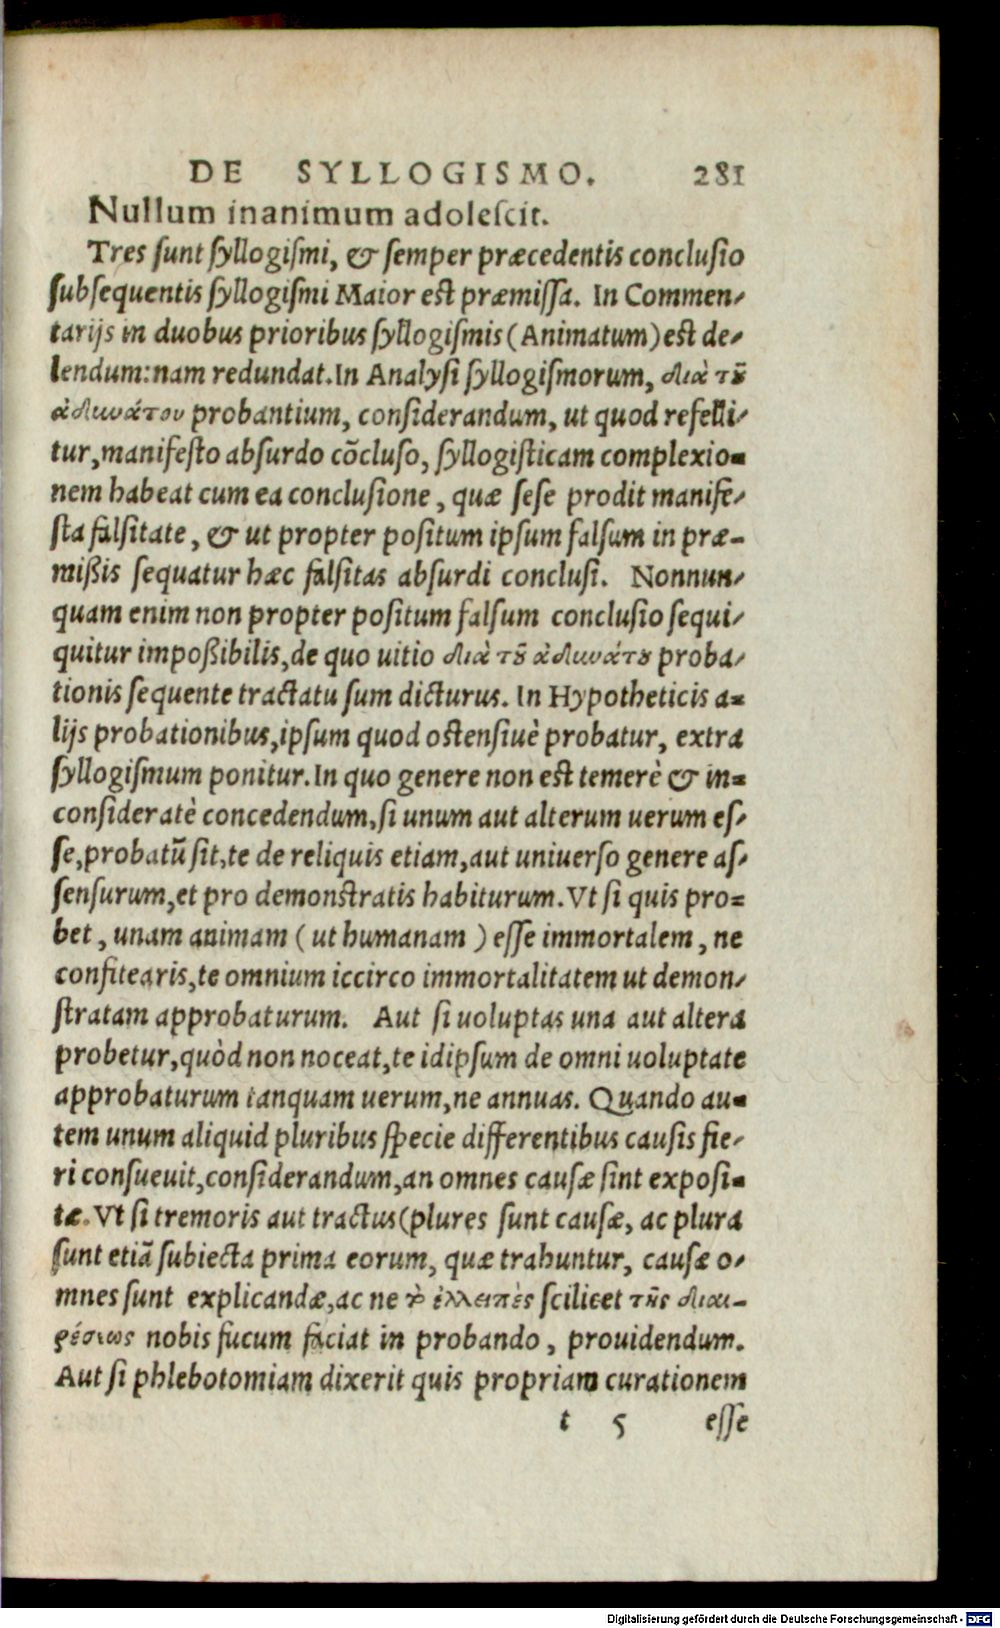 DE SYLLOGISMO. 281
Nullum inanimum adolescit.
Tres sunt syllogismi, & semper præcedentis conclusio
subsequentis syllogismi Maior est præmissa. In Commen-
tarijs in duobus prioribus syllogismis (Animatum) est de-
lendum: nam redundat. In Analysi syllogismorum, διὰ τοῦ
ἀδυνάτου probantium, considerandum, ut quod refelli-
tur, manifesto absurdo cōcluso, syllogisticam complexio-
nem habeat cum ea conclusione, quæ sese prodit manife-
sta falsitate, & ut propter positum ipsum falsum in præ-
mißis sequatur hæc falsitas absurdi conclusi. Nonnun-
quam enim non propter positum falsum conclusio sequi-
quitur impoßibilis, de quo uitio διὰ τοῦ ἀδυνάτου proba-
tionis sequente tractatu sum dicturus. In Hypotheticis a-
lijs probationibus, ipsum quod ostensiuè probatur, extra
syllogismum ponitur. In quo genere non est temerè & in-
consideratè concedendum, si unum aut alterum uerum es-
se, probatū sit, te de reliquis etiam, aut uniuerso genere as-
sensurum, et pro demonstratis habiturum. Vt si quis pro-
bet, unam animam (ut humanam) esse immortalem, ne
confitearis, te omnium iccirco immortalitatem ut demon-
stratam approbaturum. Aut si uoluptas una aut altera
probetur, quòd non noceat, te idipsum de omni uoluptate
approbaturum tanquam uerum, ne annuas. Quando au-
tem unum aliquid pluribus specie differentibus causis fie-
ri consueuit, considerandum, an omnes causæ sint exposi-
tæ. Vt si tremoris aut tractus (plures sunt causæ, ac plura
sunt etiā subiecta prima eorum, quæ trahuntur, causæ o-
mnes sunt explicandæ, ac ne τὸ ἐλλειπὲς scilicet τῆς διαι-
ρέσεως nobis fucum faciat in probando, prouidendum.
Aut si phlebotomiam dixerit quis propriam curationem
t 5 esse
Digitalisierung gefördert durch die Deutsche Forschungsgemeinschaft - DFG